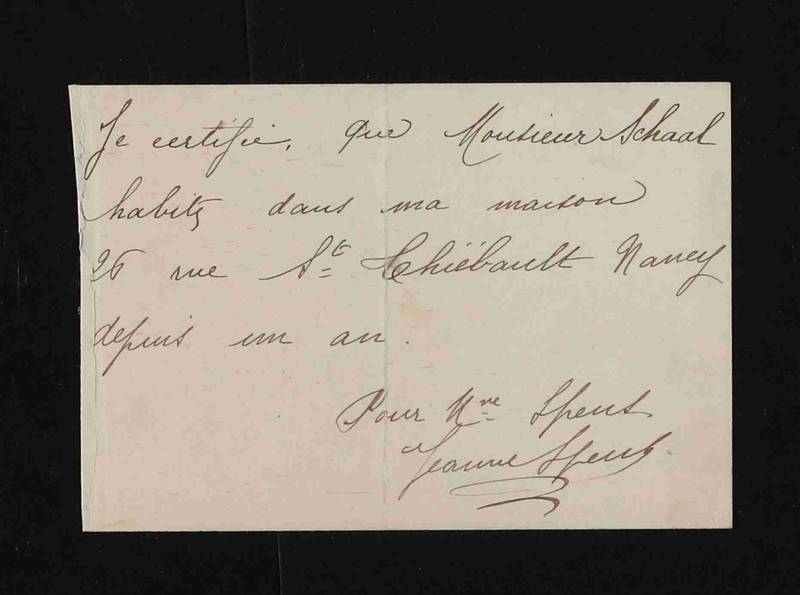 Je certifie, que Monsieur Schaal
habite dans ma maison
26 rue St Thiébault Nancy
depuis un an.
Pour Mme Spens
Jeanne Spens